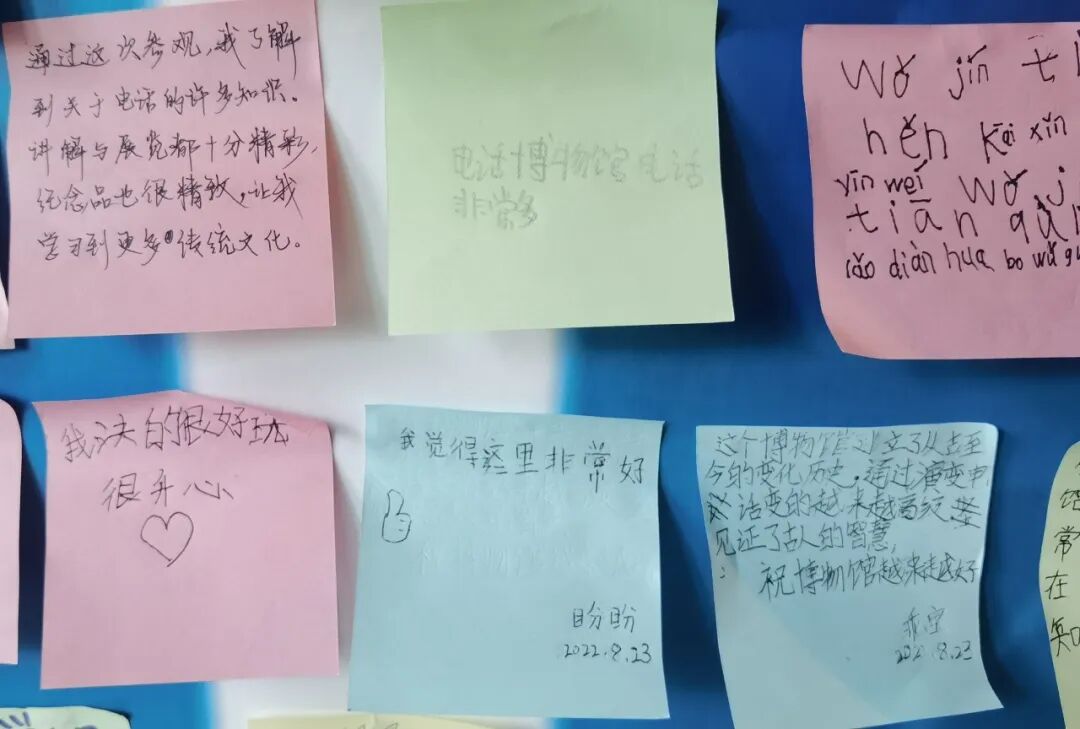 通过这次参观,我了解
到关于电话的许多知识.
讲解与展览都十分精彩,
纪念品也很精致,让我
学习到更多传统文化。
电话博物馆电话
非常多
wǒ jīn t
hěn kāi xīn
yīn weí wǒ j
tiān
diàn hua bo wǔ gu
我决的很好玩
很开心
我觉得这里非常好
盼盼
2022.8.23
这个博物馆 了从古至
今的变化历史,通过演变电
话变的越来越高级,
见证了古人的智慧,
祝博物馆越来越好
8.23
常
在
知